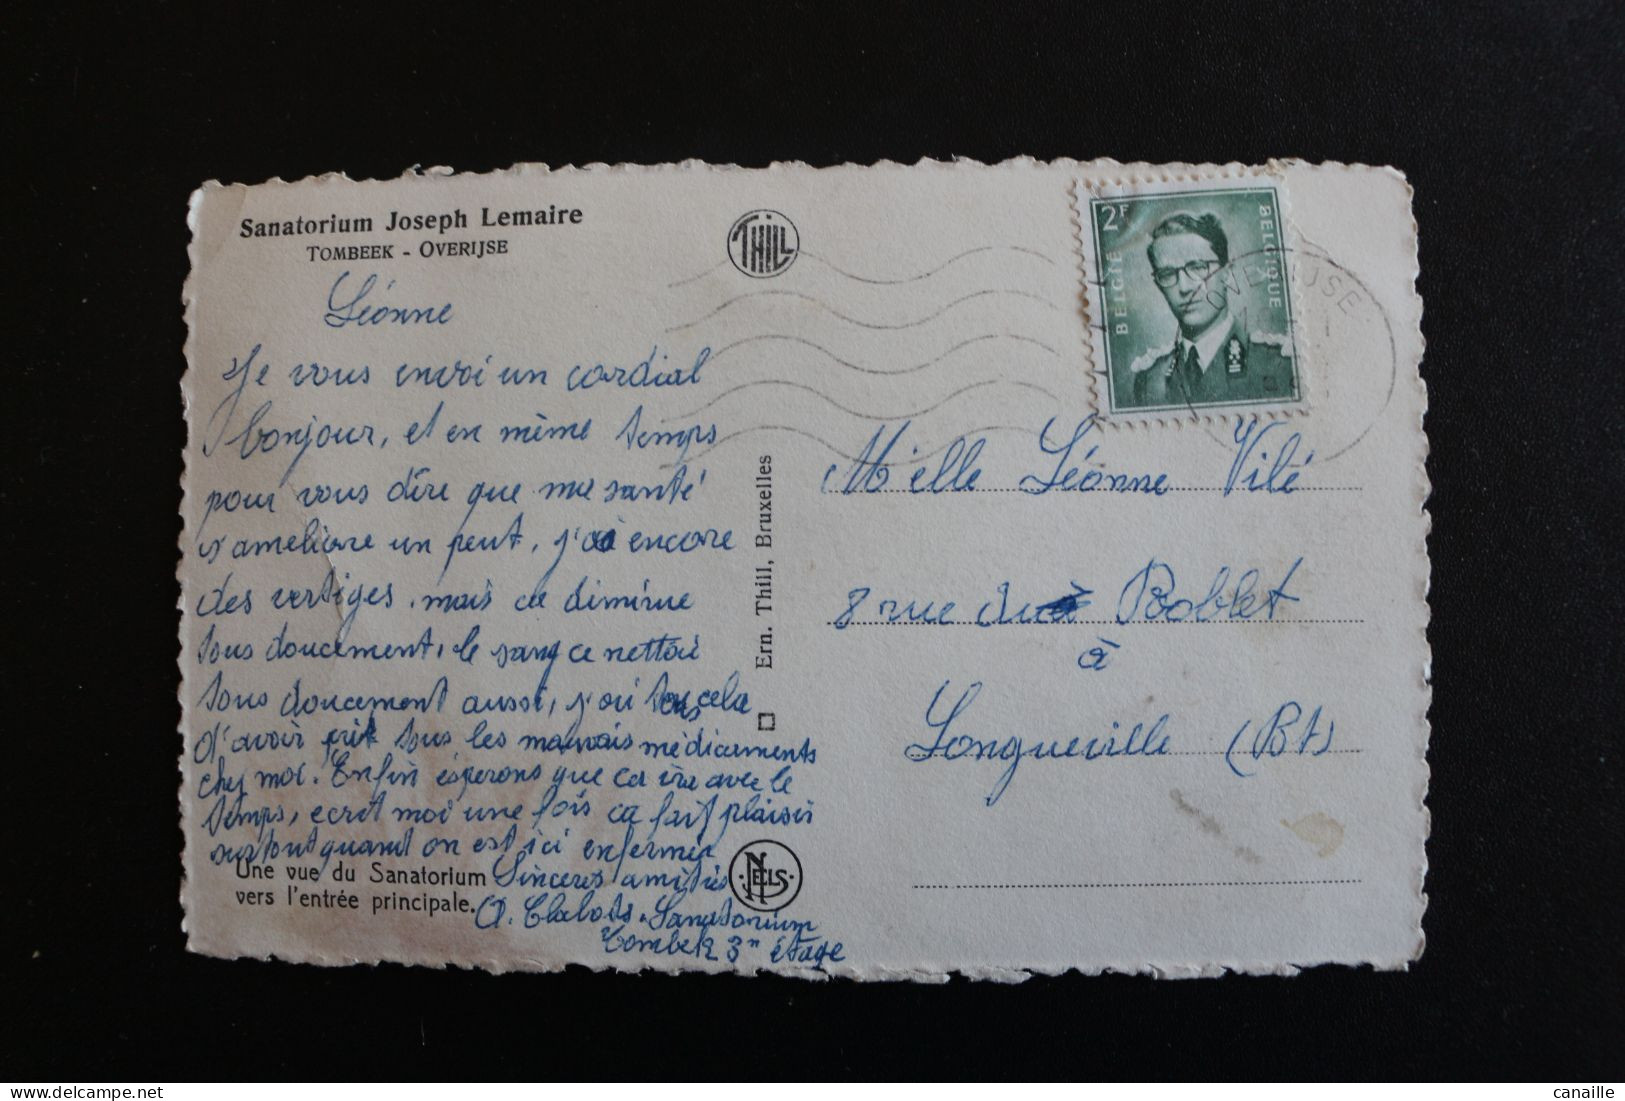 Sanatorium Joseph Lemaire
TOMBEEK - OVERIJSE
THILL
2F
BELGIË
BELGIQUE
OVERIJSE
Léonne
Je vous envoi un cordial
bonjour, et en même temps
pour vous dire que ma santé
s'ameliore un peut, j'ai encore
des vertiges, mais ca diminue
tous doucement, le sang ce nettoi
tous doucement aussi, j'ai tous cela
d'avoir prit tous les mauvais médicaments
chez moi. Enfin ésperons que ca ira avec le
temps, ecrit moi une fois ca fait plaisir
surtout quant on est ici enfermer
Sinceres amitiés
Sanatorium
Tombek 3n étage
Une vue du Sanatorium
vers l'entrée principale.
NELS
Ern. Thill, Bruxelles
M'elle Léonne Vilé
8 rue du Roblet
à
Longueville (Bt)
delcampe.net
canaille